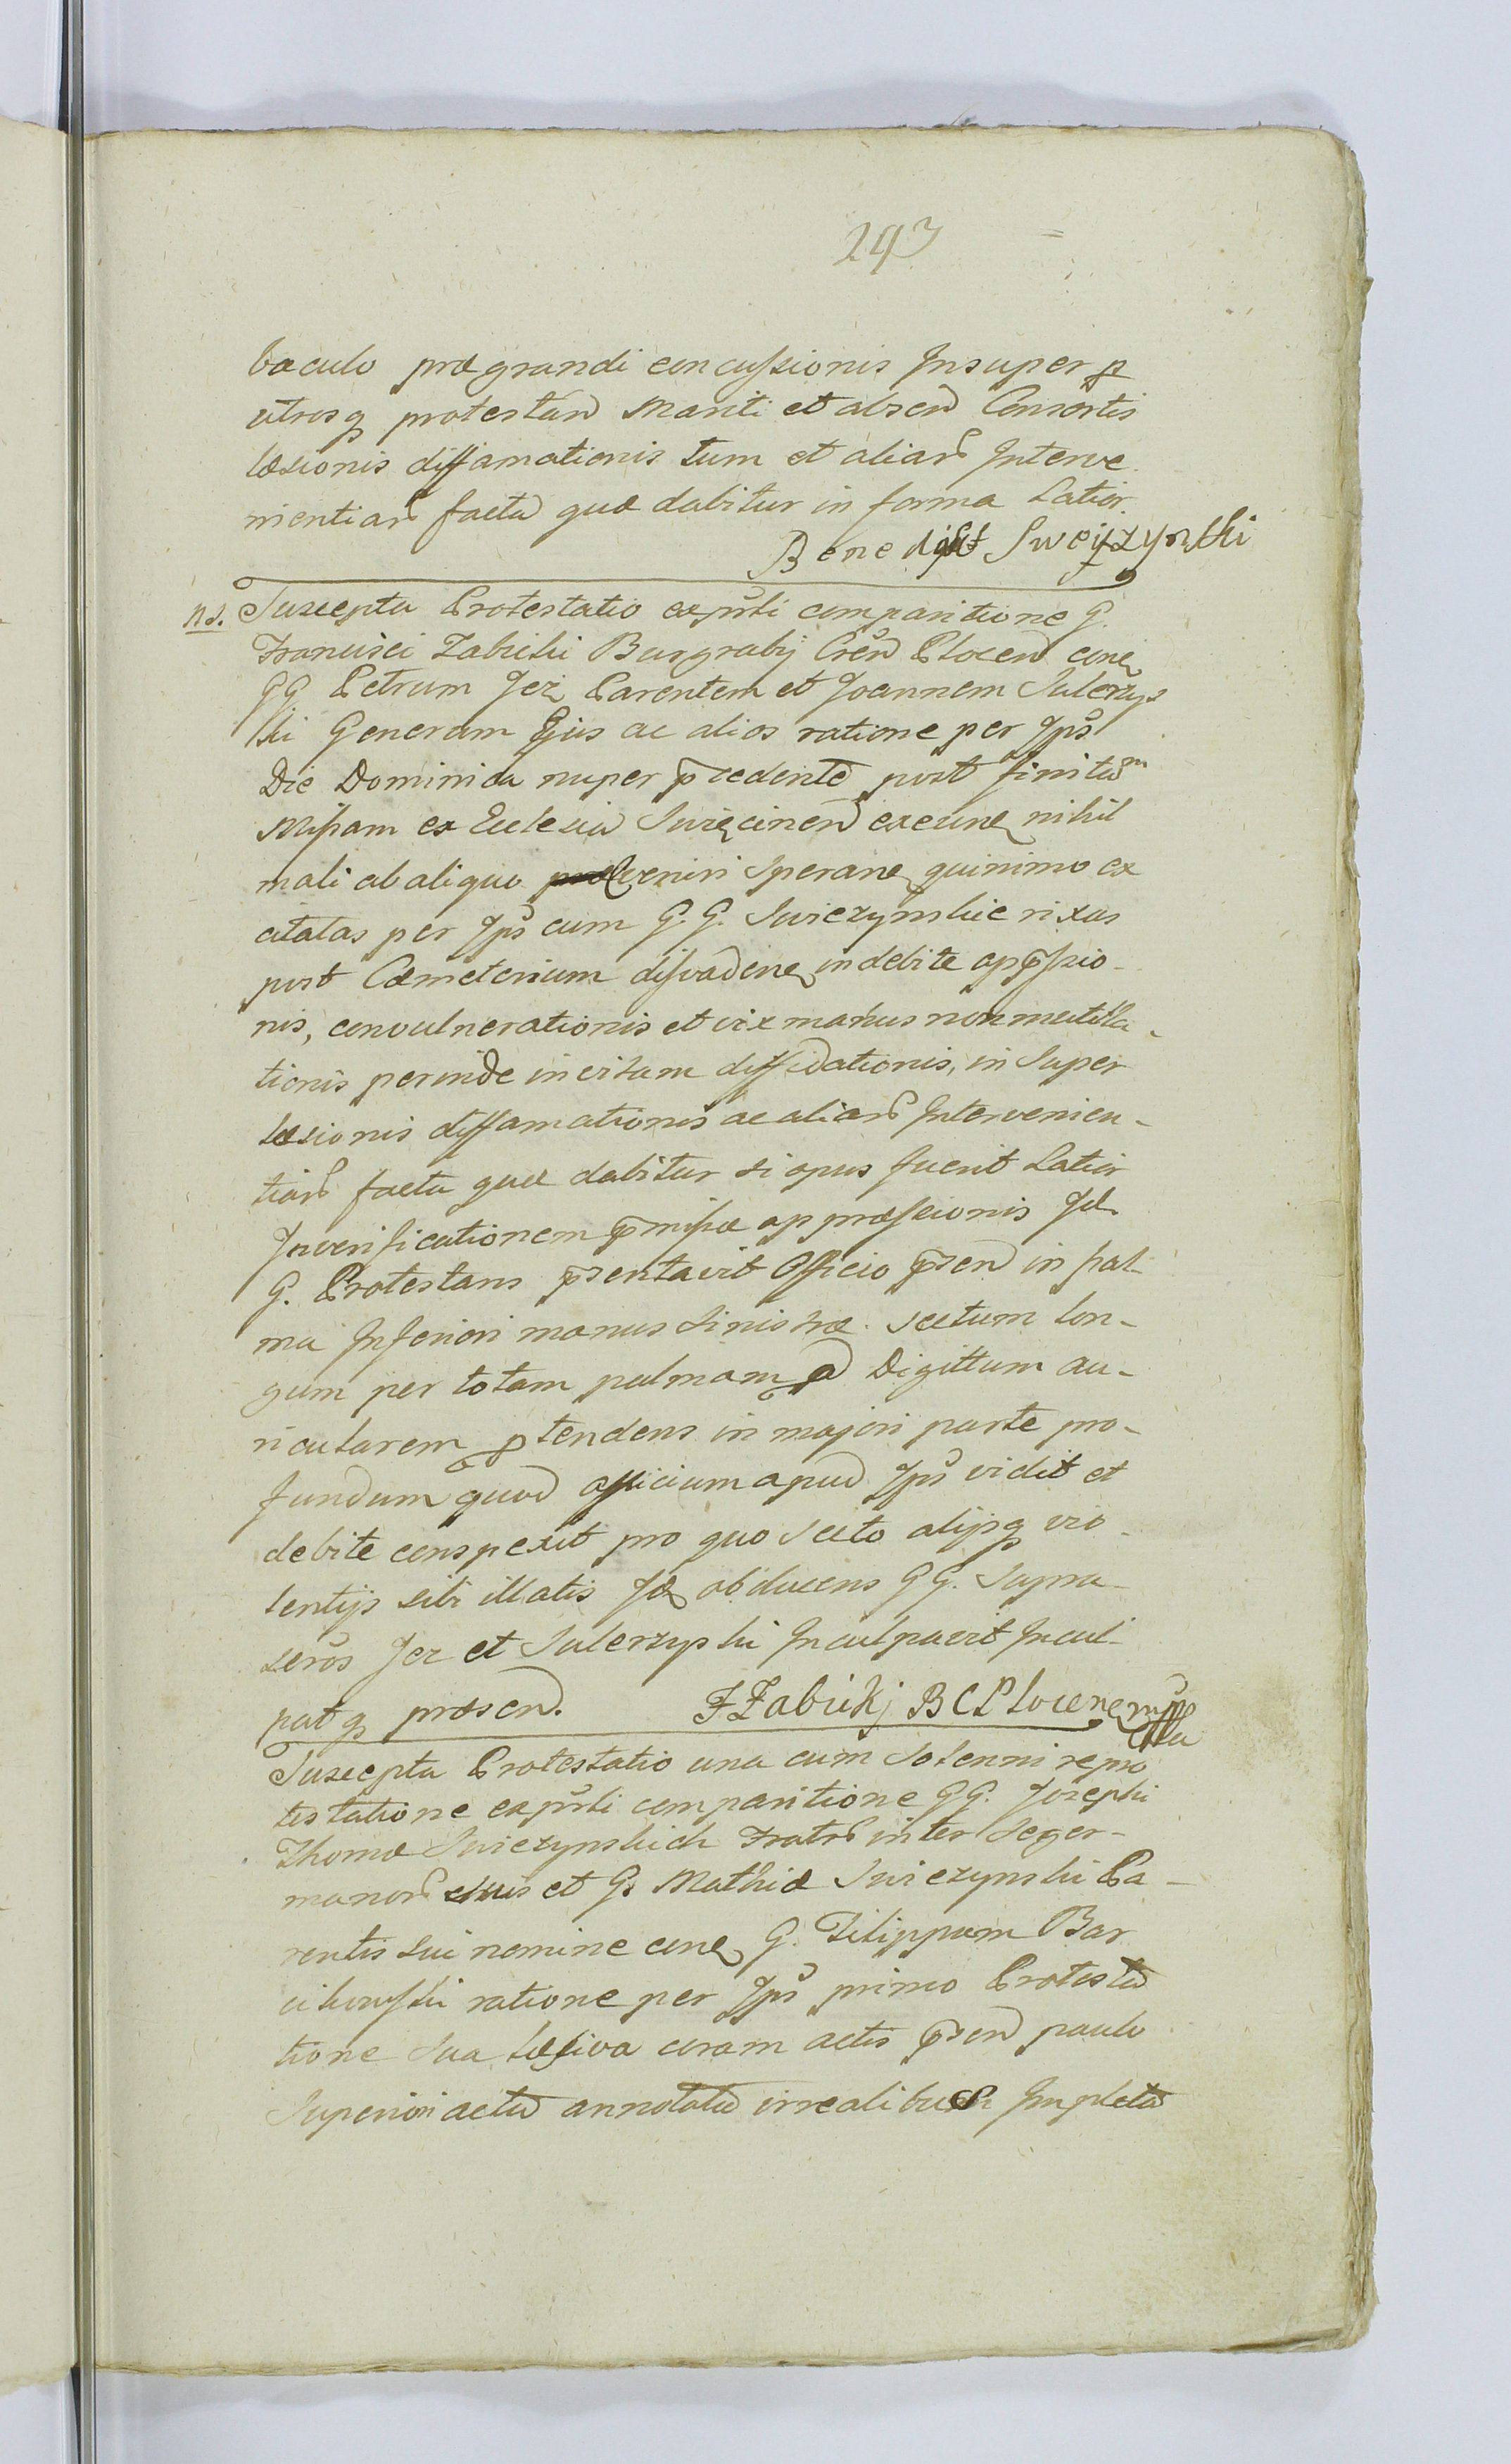 293
baculo prægrandi concussionis Insuper p
utrosq protestan Mariti et absen Consortis
læsionis diffamationis tum et aliar Interve
nientiar facta quæ dabitur in forma Latior.
Benedykt Sweyzynski
ns. Suscepta Protestatio expsti comparitione G.
Francisci Zabicki Burgrabij Cren Plocen cone
GG Petrum Jez Parentem et Joannem Sulerzys
ki Generum Ejus ac alios ratione per Ips
Die Dominica nuper pcedente post finitam
Missam ex Ecclesia Swięcinen exeune nihil
mali ab aliquo veniri Sperane quinimo ex
citatas per Ips cum G. G. Swiezynskie rixas
post Cæmeterium dissvadene indebite oppssio-
nis, convulnerationis et vix manus non mutilla-
tionis perinde in vitam diffidationis, in Super
læsionis diffamationis ac aliar Intervenien-
tiar facta quæ dabitur si opus fuerit Latior
Inverificationem pmissæ oppræssionis Id
G. Protestans psentavit Officio psen in pal-
ma Inferiori manus sinistræ sectum lon-
gum per totam palmam a Digittum au-
ricularem ptendens in majori parte pro-
fundum quod officium apud Ips vidit et
debite conspexit pro quo secto alijsq vio-
lentijs sibi illatis Id obducens GG. Supra
scros Jez et Sulerzyski Inculpavit Incul-
patq præsen. FZabickj BCPlocene mpp
Suscepta Protestatio una cum Solenni repro
testatione expsti comparitione GG. Josephi
Thomæ Swiezynskich Fratr inter se ger-
manor suis et G. Mathiæ Swiezynski Pa-
rentis sui nomine cone G. Filippum Bar
cikowski ratione per Ips primo Protesta
tione sua læsiva coram actis psen paulo
Superiori actu annotata irrealibus Impleta